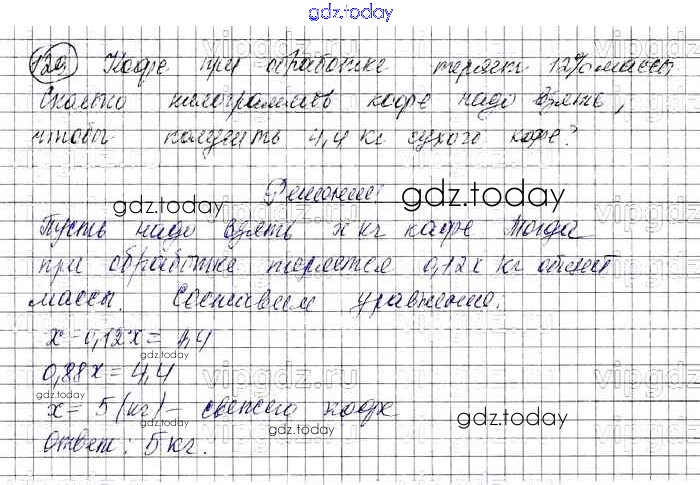 gdz.today
120. Кофе при обработке теряет 12% массы
Сколько килограммов кофе надо взять,
чтобы получить 4,4 кг сухого кофе?
Решение
gdz.today
gdz.today
Пусть надо взять x кг кофе Тогда
при обработке теряется 0,12x кг от
массы. Составим уравнение.
x-0,12x= 4,4
gdz.today
0,88x=4,4
gdz.today
x= 5 (кг) - свежего кофе
gdz.today
Ответ: 5 кг.
gdz.today
gdz.today